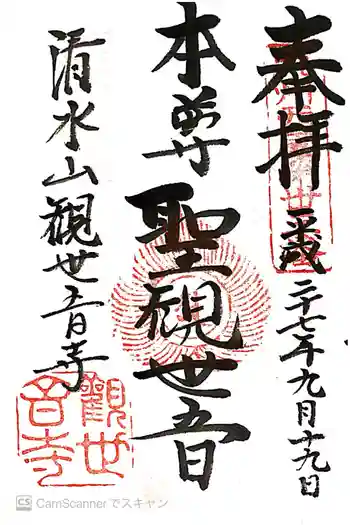 奉拝
平成二十七年九月十九日
本尊
聖観世音
清水山観世音寺
觀世音寺
CS CamScanner でスキャン